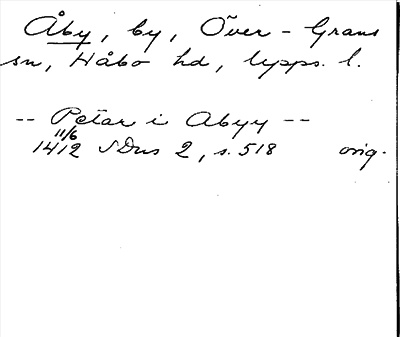 Åby, by, Över-Grans
sn, Håbo hd, Upps. l.
-- Petar i Abyy --
11/6
1412 SDns 2, s. 518 orig.